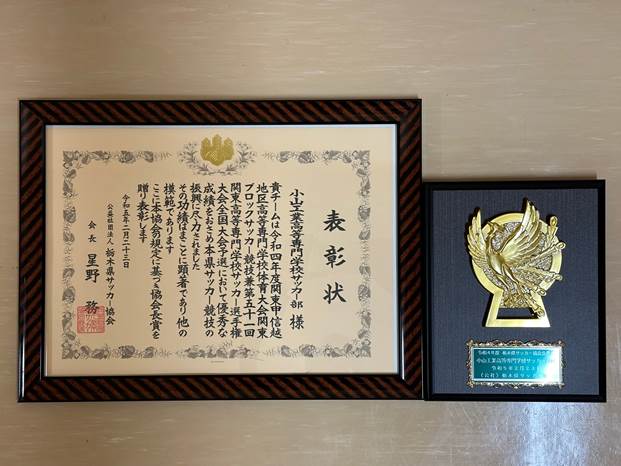 表彰状
小山工業高等専門学校サッカー部 様
貴チームは令和四年度関東甲信越
地区高等専門学校体育大会関東
ブロックサッカー競技兼第五十一回
関東高等専門学校サッカー選手権
大会全国大会予選において優秀な
成績をおさめ本県サッカー競技の
振興に尽力されました
その功績はまことに顕著であり他の
模範であります
ここに本協会規定に基づき協会長賞を
贈り表彰します
令和五年二月二十三日
公益社団法人 栃木県サッカー協会
会長 星野 務
令和4年度 栃木県サッカー協会
小山工業高等専門学校サッカー
令和5年2月23
(公社)栃木県サッカー